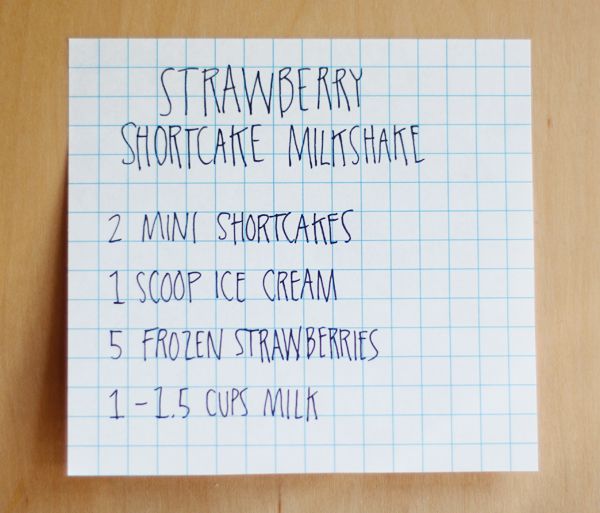 STRAWBERRY
SHORTCAKE MILKSHAKE
2 MINI SHORTCAKES
1 SCOOP ICE CREAM
5 FROZEN STRAWBERRIES
1-1.5 CUPS MILK